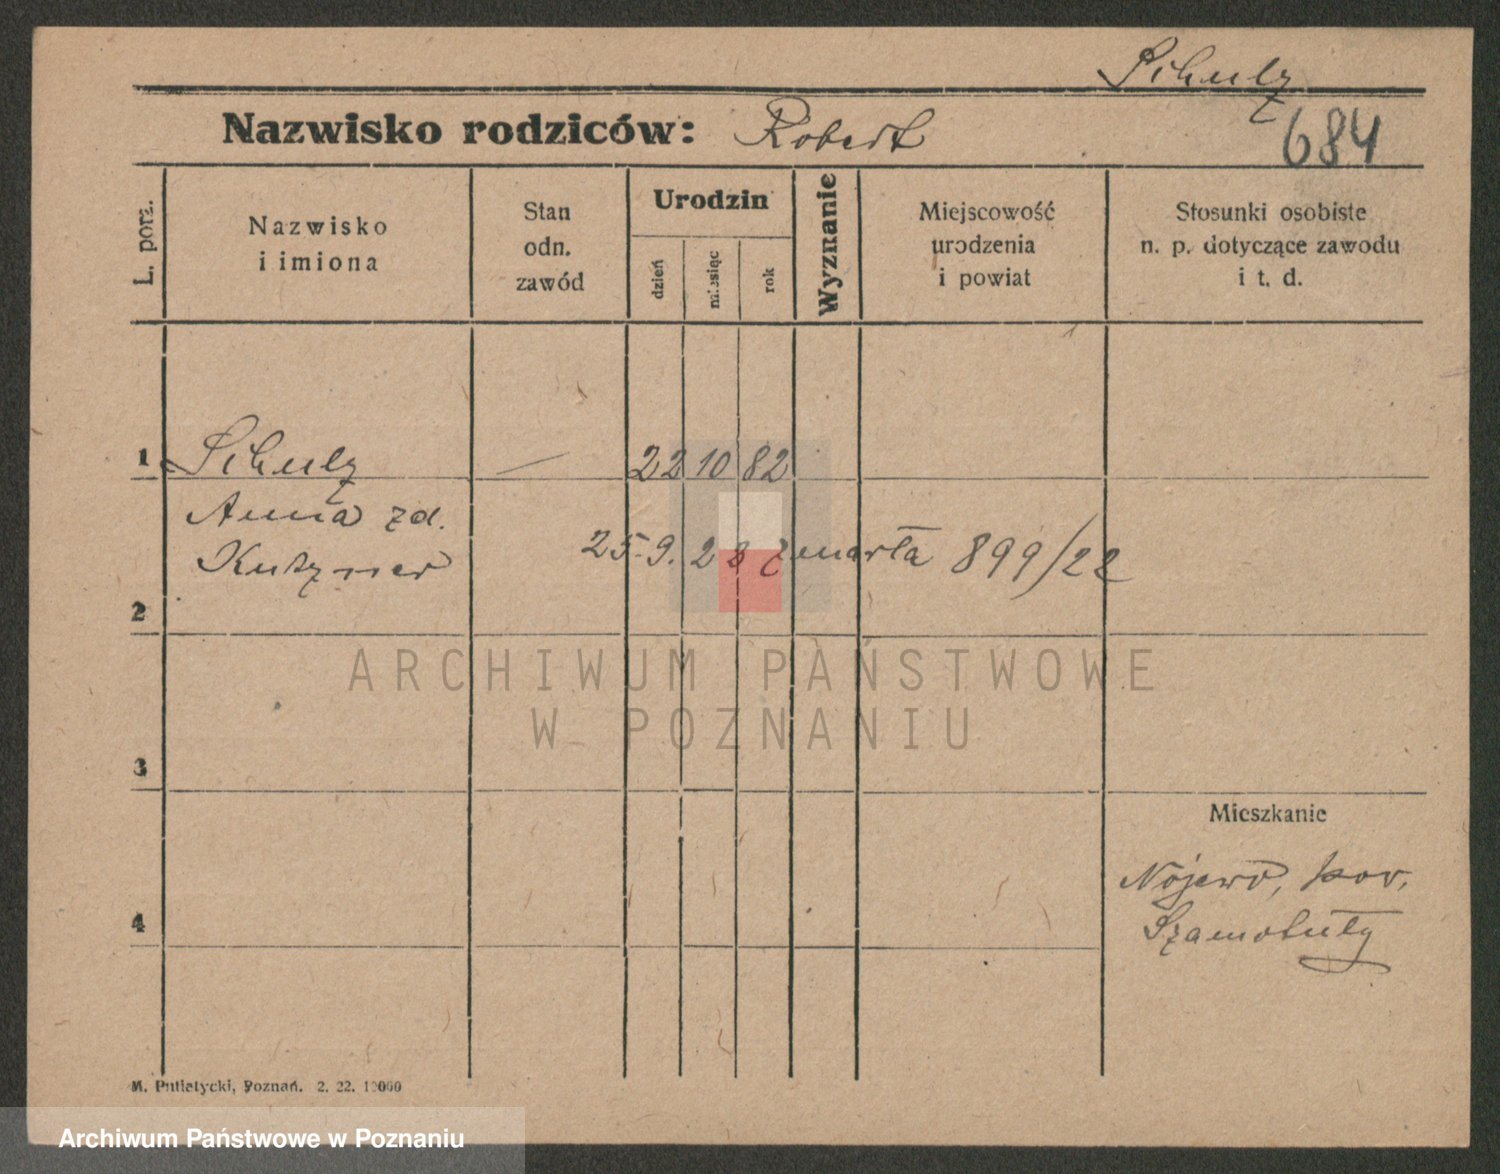 Schulz
Nazwisko rodziców: Robert
684
L. porz.
Nazwisko
i imiona
Stan
odn.
zawód
Urodzin
dzień
miesiąc
rok
Wyznanie
Miejscowość
urodzenia
i powiat
Stosunki osobiste
n. p. dotyczące zawodu
i t. d.
1 Schulz — 22 10 82
Anna zd.
25. 9. 22 zmarła 899/22
2
3
4
Mieszkanie
Nojewo, pow.
Szamotuły
M. Putiatycki, Poznań. 2. 22. 10000
ARCHIWUM PAŃSTWOWE
W POZNANIU
Archiwum Państwowe w Poznaniu